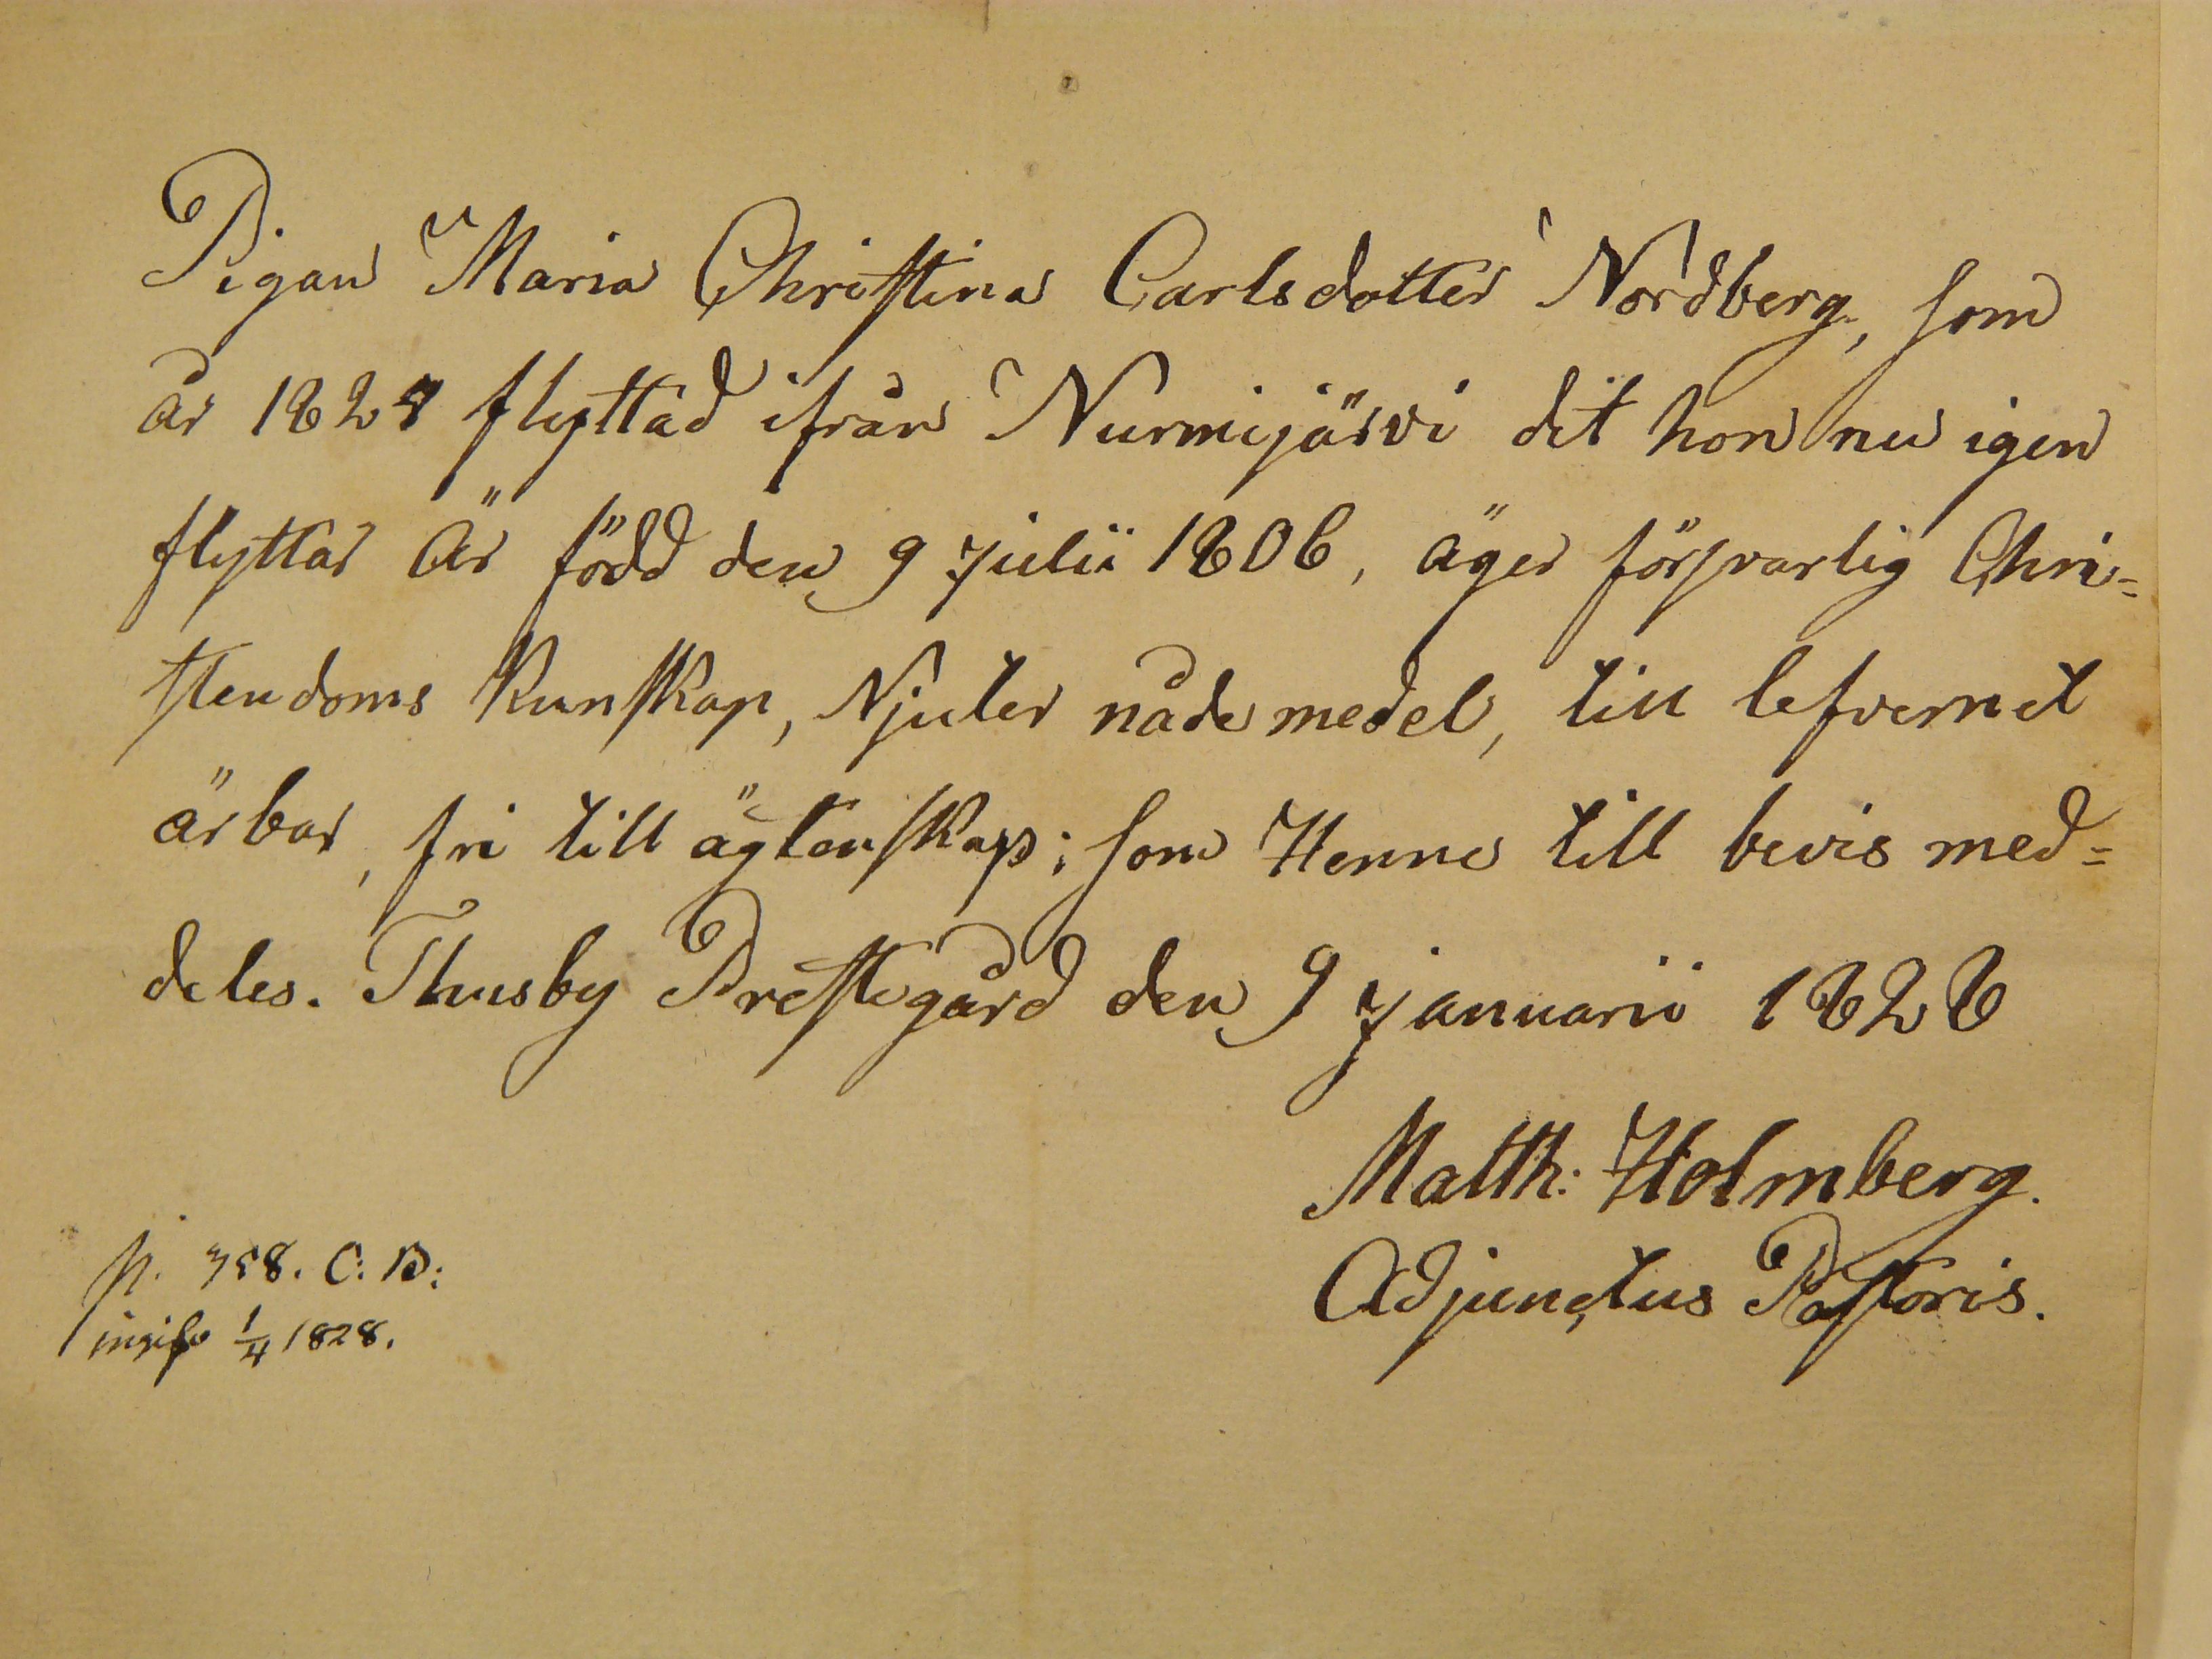 Pigan Maria Christina Carlsdotter Nordberg, som
år 1827 flyttad ifrån Nurmijärvi dit hon nu igen
flyttar är född den 9 Julii 1806, äger försvarlig Chri=
stendoms kunskap, Njuter nådemedel, till lefvernet
ärbar, fri till ägtenskap; som Henne till bevis med=
deles. Thusby Prestegård den 9 Januarii 1828
Matth: Holmberg.
Adjunctus Pastoris.
p. 758. C: B:
1/4 1828.